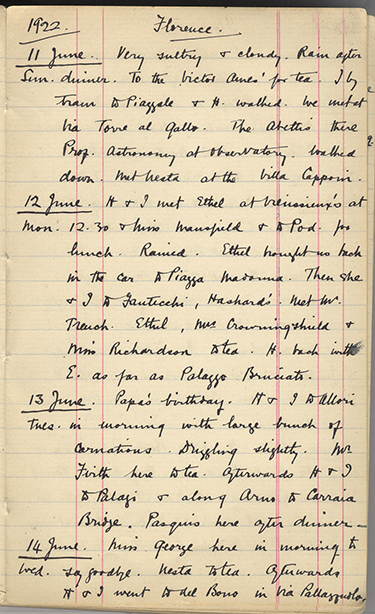 1922. Florence.
11 June. Very sultry & cloudy. Rain after
Sun. dinner. To the Victor Ames' for tea. I by
tram to Piazzale & H. walked. We met at
Via Torre al Gallo. The Abettis there
Prof. Astronomy at Observatory. Walked
down. Met Nesta at the Villa Capponi.
12 June. H & I met Ethel at Vieusseux's at
Mon. 12.30 & Miss Mansfield & to Pod. for
lunch. Rained. Ethel brought us back
in the car to Piazza Madonna. Then she
& I to Fanticchi, Haskard's. Met Mr.
Trench. Ethel, Mrs Crowningshield &
Miss Richardson to tea. H. back with
E. as far as Palazzo Bruciato.
13 June. Papa's birthday. H & I to Allori
Tues. in morning with large bunch of
carnations. Drizzling slightly. Mr.
Firth here to tea. Afterwards H & I
to Pelagi & along Arno to Carraia
Bridge. Pasquis here after dinner –
14 June. Miss George here in morning to
Wed. say goodbye. Nesta to tea. Afterwards
H & I went to del Bono in Via